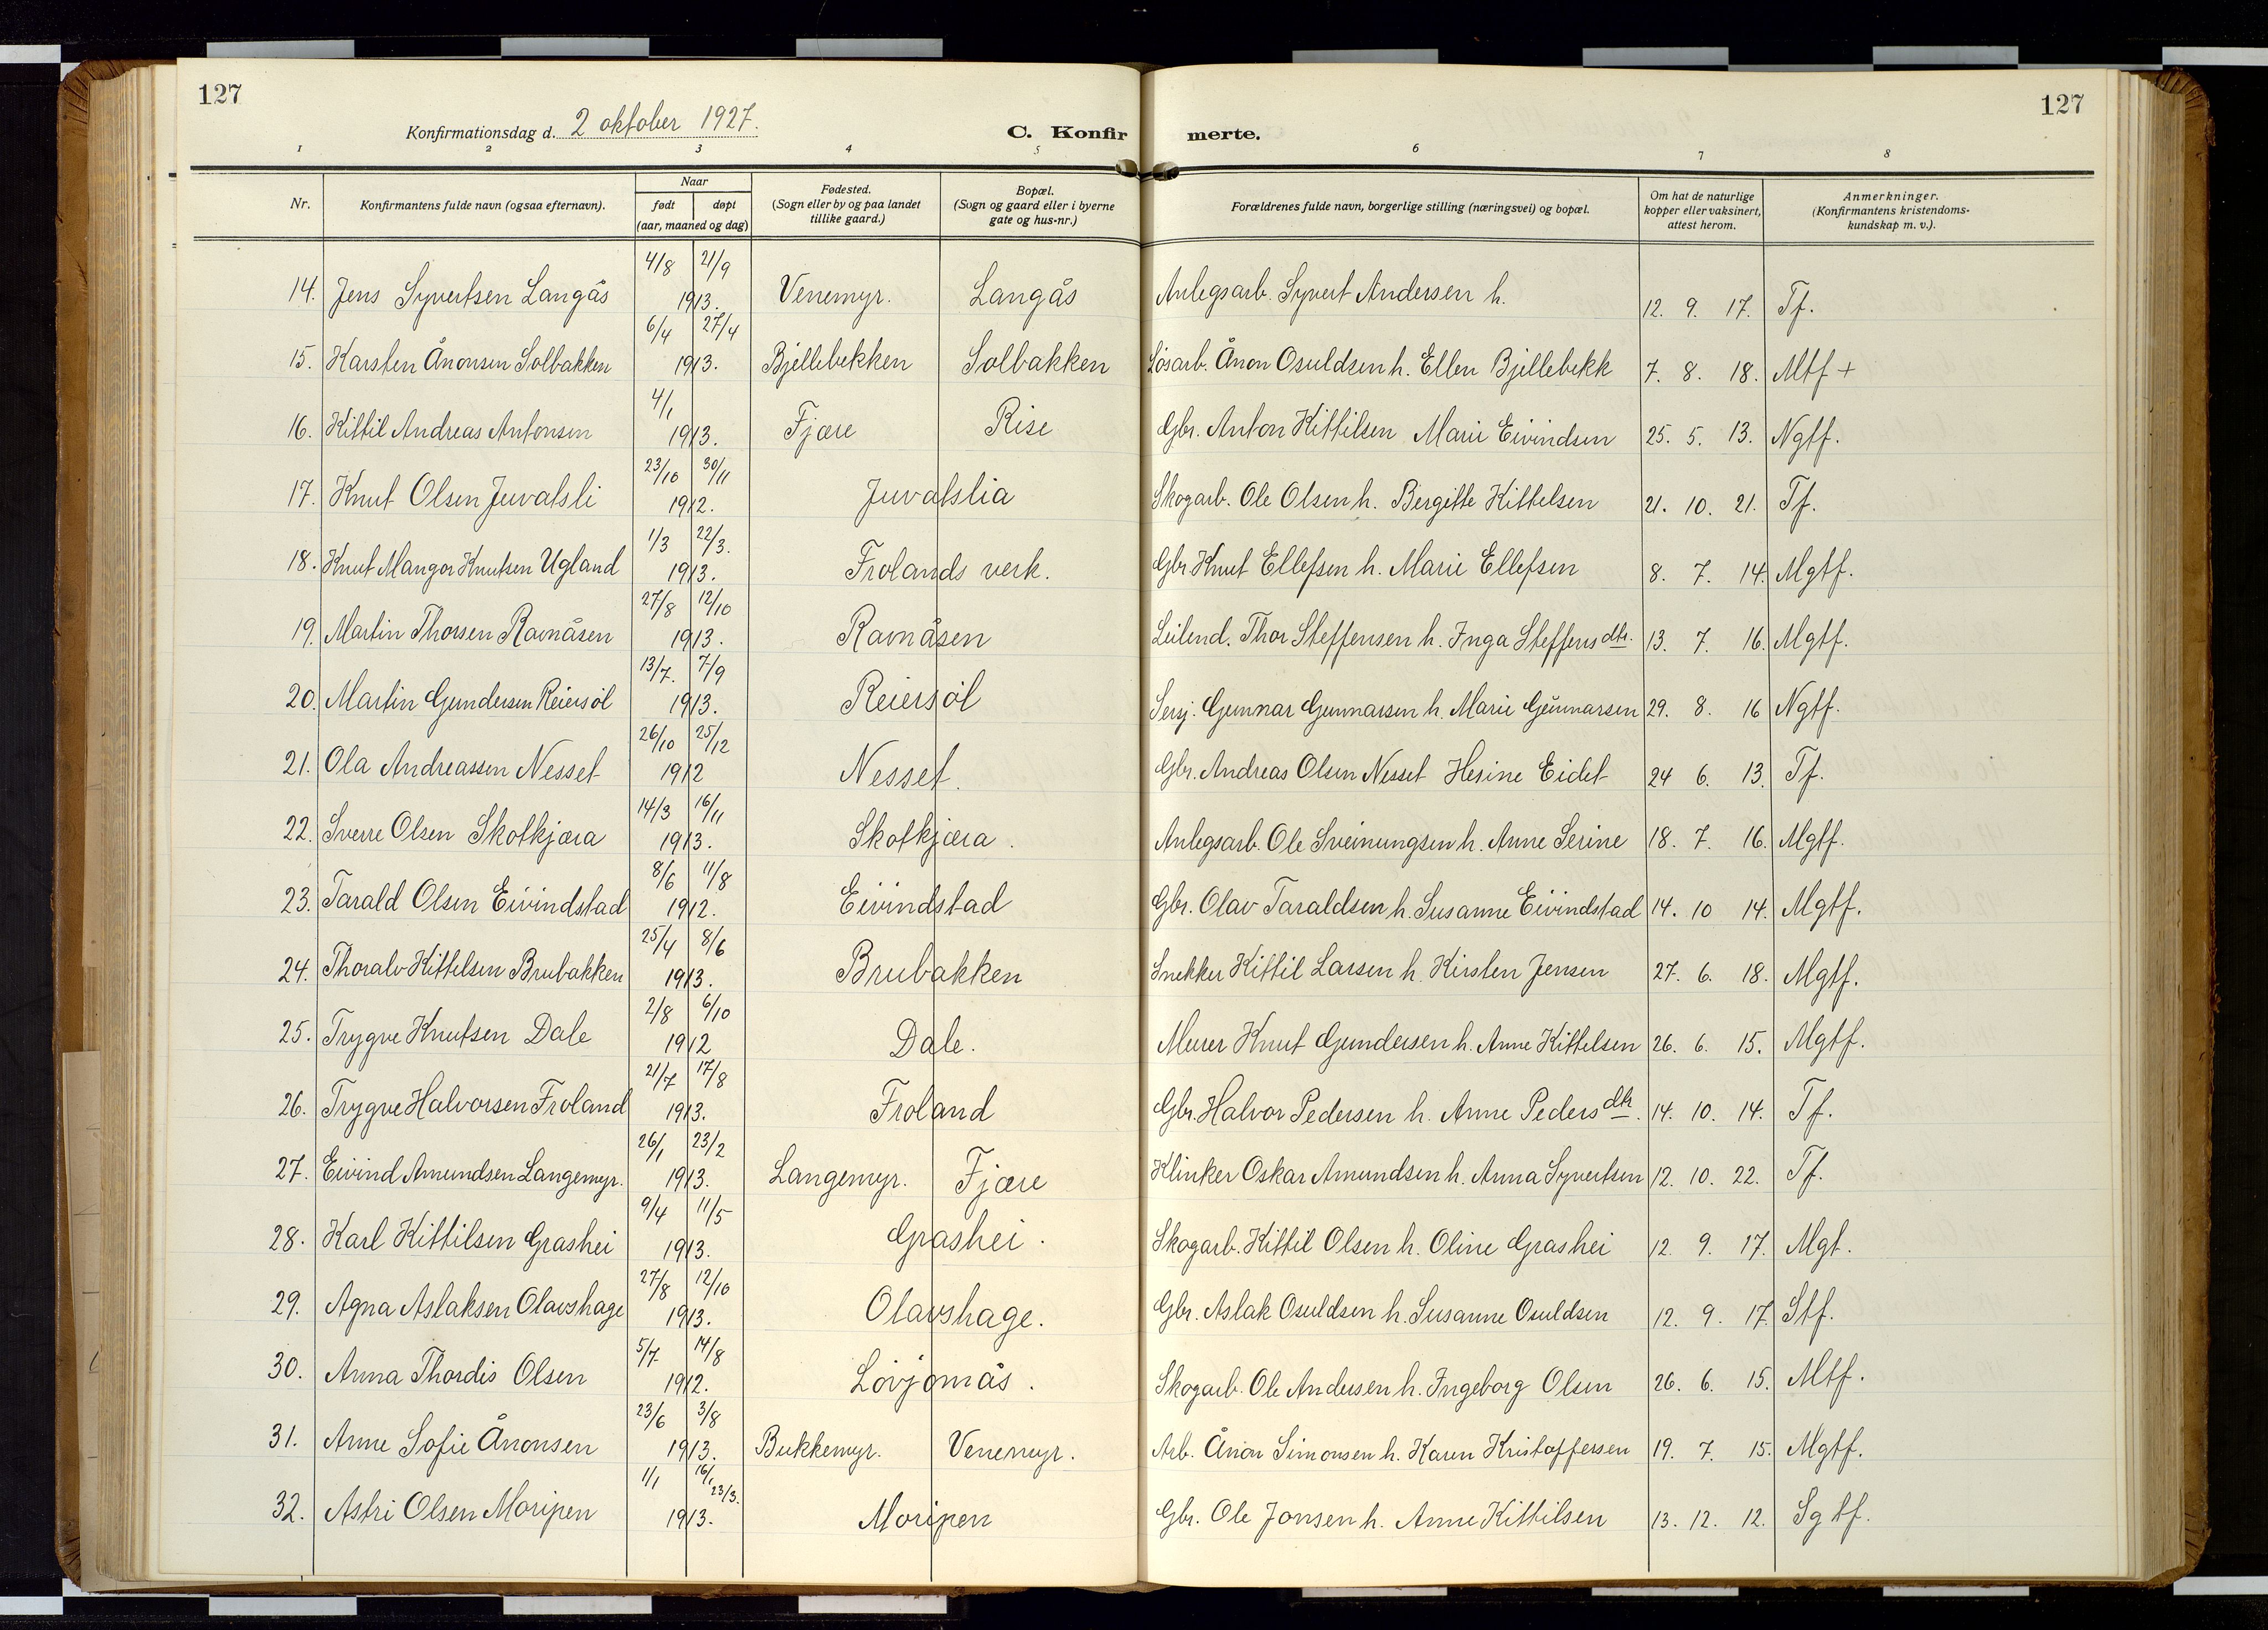 127
127
Konfirmationsdag d. 2 oktober 1927.
C. Konfirmerte.
1 2 3 4 5 6 7 8
Nr.
Konfirmantens fulde navn (ogsaa efternavn).
Naar
født døpt
(aar, maaned og dag)
Fødested.
(Sogn eller by og paa landet
tillike gaard.)
Bopæl.
(Sogn og gaard eller i byerne
gate og hus-nr.)
Forældrenes fulde navn, borgerlige stilling (næringsvei) og bopæl.
Om hat de naturlige
kopper eller vaksinert,
attest herom.
Anmerkninger.
(Konfirmantens kristendoms-
kundskap m. v.).
4/8 21/9
14. Jens Syvertsen Langås 1913. Venemyr. Langås Anlegsarb. Syvert Andersen h. 12. 9. 17. Tf.
6/4 27/4
15. Karsten Ånonsen Solbakken 1913. Bjellebekken Solbakken Løsarb. Ånon Osuldsen h. Ellen Bjellebekk 7. 8. 18. Mtf +
4/1
16. Kittil Andreas Antonsen 1913. Fjære Rise Gbr. Anton Kittilsen Marie Eivindsen 25. 5. 13. Ngtf.
23/10 30/11
17. Knut Olsen Juvatsli 1912. Juvatslia Skogarb. Ole Olsen h. Bergitte Kittelsen 21. 10. 21. Tf.
1/3 22/3.
18. Knut Mangor Knutsen Ugland 1913. Frolands verk. Gbr Knut Ellefsen h. Marie Ellefsen 8. 7. 14. Mgtf.
27/8 12/10
19. Martin Thorsen Ravnåsen 1913. Ravnåsen Leilend. Thor Steffensen h. Inga Steffensdtr. 13. 7. 16. Mgtf.
13/7. 7/9
20. Martin Gundersen Reiersøl 1913. Reiersøl Sersj. Gunnar Gunnarsen h. Marie Gunnarsen 29. 8. 16 Ngtf.
26/10 25/12
21. Ola Andreassen Nesset 1912 Nesset. Gbr. Andreas Olsen Nesset Hesine Eidet 24 6. 13. Tf.
14/3 16/11
22. Sverre Olsen Skotkjæra 1913. Skotkjæra. Anlegsarb. Ole Sveinungsen h. Anne Serine 18. 7. 16. Mgtf.
8/6 11/8
23. Tarald Olsen Eivindstad 1912. Eivindstad Gbr. Olav Taraldsen h. Susanne Eivindstad 14. 10 14. Mgtf.
25/4 8/6
24. Thoralv Kittelsen Brubakken 1913. Brubakken Snekker Kittil Larsen h. Kirsten Jensen 27. 6. 18. Mgtf.
2/8 6/10
25. Trygve Knutsen Dale 1912 Dale. Murer Knut Gundersen h. Anne Kittelsen 26. 6. 15. Mgtf.
21/7 17/8
26. Trygve Halvorsen Froland 1913. Froland Gbr. Halvor Pedersen h. Anne Pedersdtr. 14. 10. 14. Tf.
26/1 23/2
27. Eivind Amundsen Langemyr. 1913. Langemyr. Fjære Klinker Oskar Amundsen h. Anna Syvertsen 12. 10. 22. Tf.
9/4 11/5
28. Karl Kittilsen Grashei 1913. Grashei. Skogarb. Kittil Olsen h. Oline Grashei 12. 9. 17. Mgt.
27/8 12/10
29. Agna Aslaksen Olavshage 1913. Olavshage. Gbr. Aslak Osuldsen h. Susanne Osuldsen 12. 9. 17. Stf.
5/7 14/8
30. Anna Thordis Olsen 1912. Løvjomås. Skogarb. Ole Andersen h. Ingeborg Olsen 26. 6. 15. Mtf.
23/6 3/8
31. Anne Sofie Ånonsen 1913. Bukkemyr. Venemyr. Arb. Ånon Simonsen h. Karen Kristoffersen 19. 7. 15. Mgtf.
1/1 16/1 23/3.
32. Astri Olsen Moripen 1913. Moripen Gbr. Ole Jonsen h. Anne Kittilsen 13. 12. 12. Sg tf.